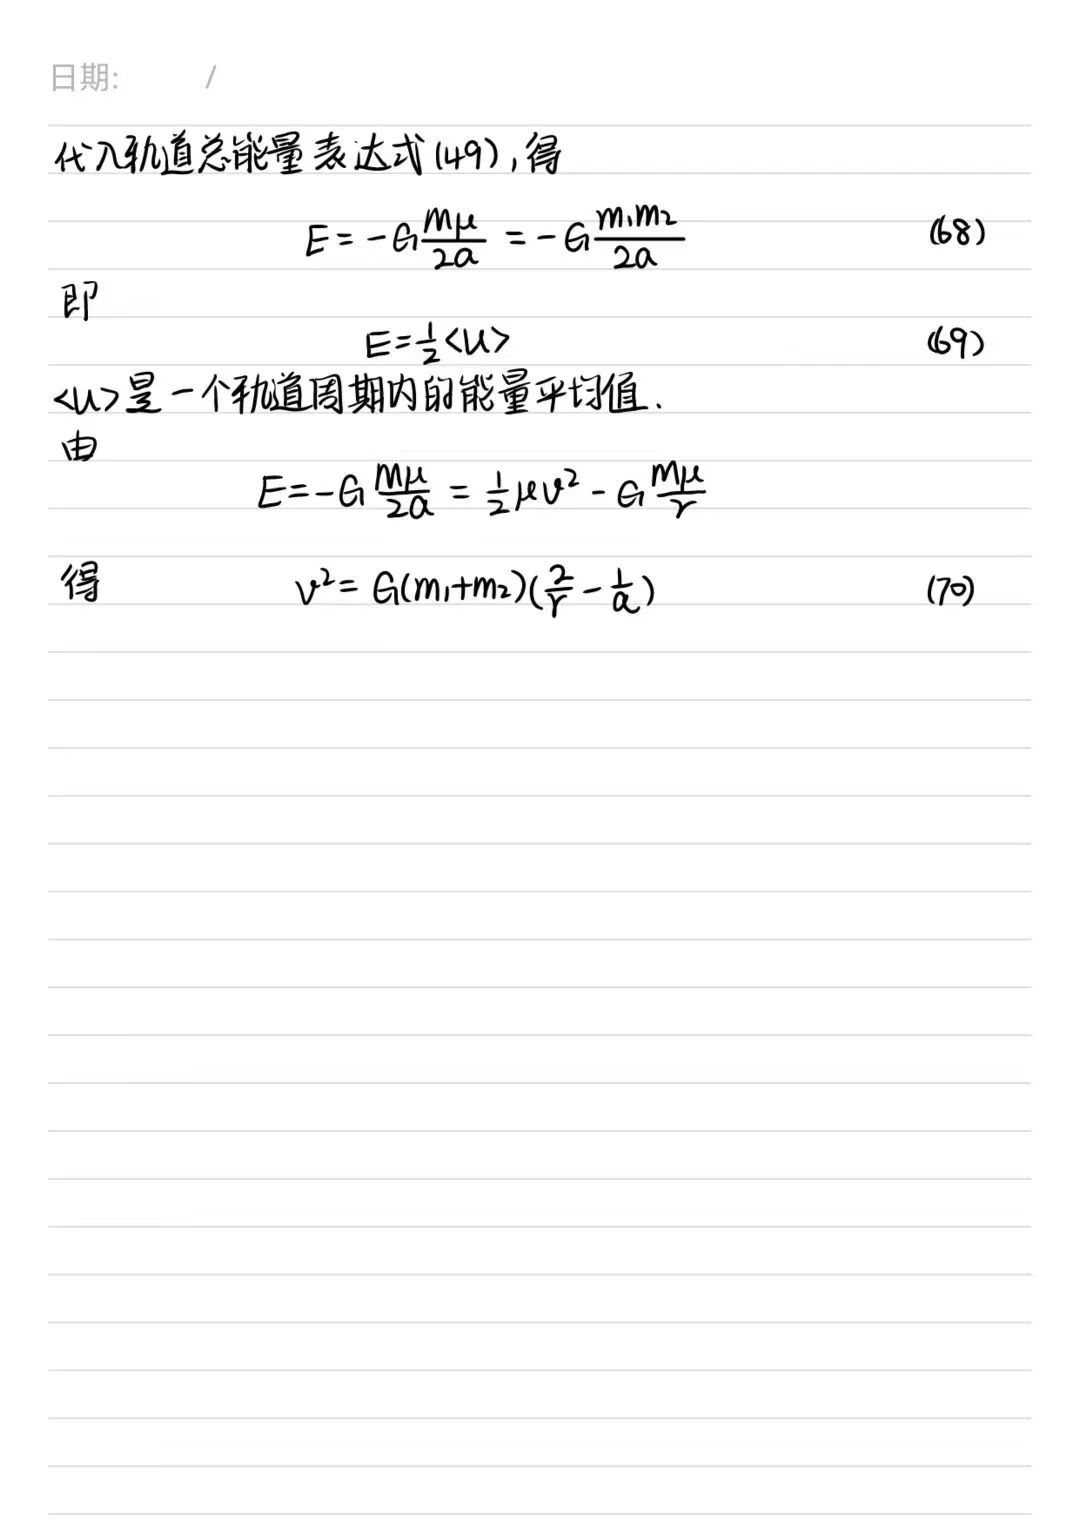 日期: /
代入轨道总能量表达式(49),得
E = -G Mμ/2a = -G m₁m₂/2a (68)
即
E = ½<U> (69)
<U>是一个轨道周期内的能量平均值.
由
E = -G Mμ/2a = ½μv² - G Mμ/r
得 v² = G(m₁+m₂)(2/r - 1/a) (70)